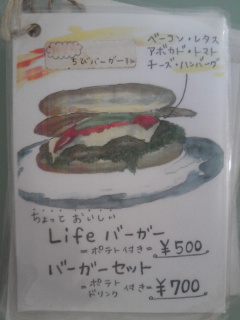 ちびバーガーさん
ベーコン・レタス
アボカド・トマト
チーズ・ハンバーグ
ちょっと おいしい
Life バーガー
=ポテト付き= ¥500
バーガーセット
=ポテト
ドリンク 付き= ¥700